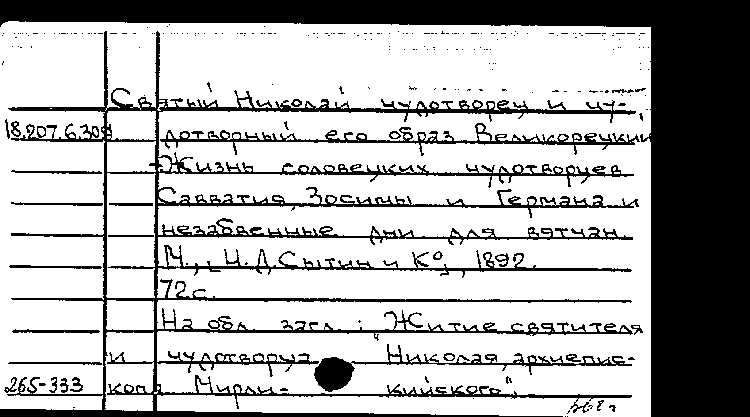 Святый Николай чудотворец и чу-
18.207.6.308. дотворный его образ Великорецкий
Жизнь соловецких чудотворцев
Савватия, Зосимы и Германа и
незабвенные дни для вятчан.
М., И.Д. Сытин и Ко, 1892.
72 с.
На обл. загл.: "Житие святителя
и чудотворца Николая, архиепис-
265-333 копа Мирли- кийского".